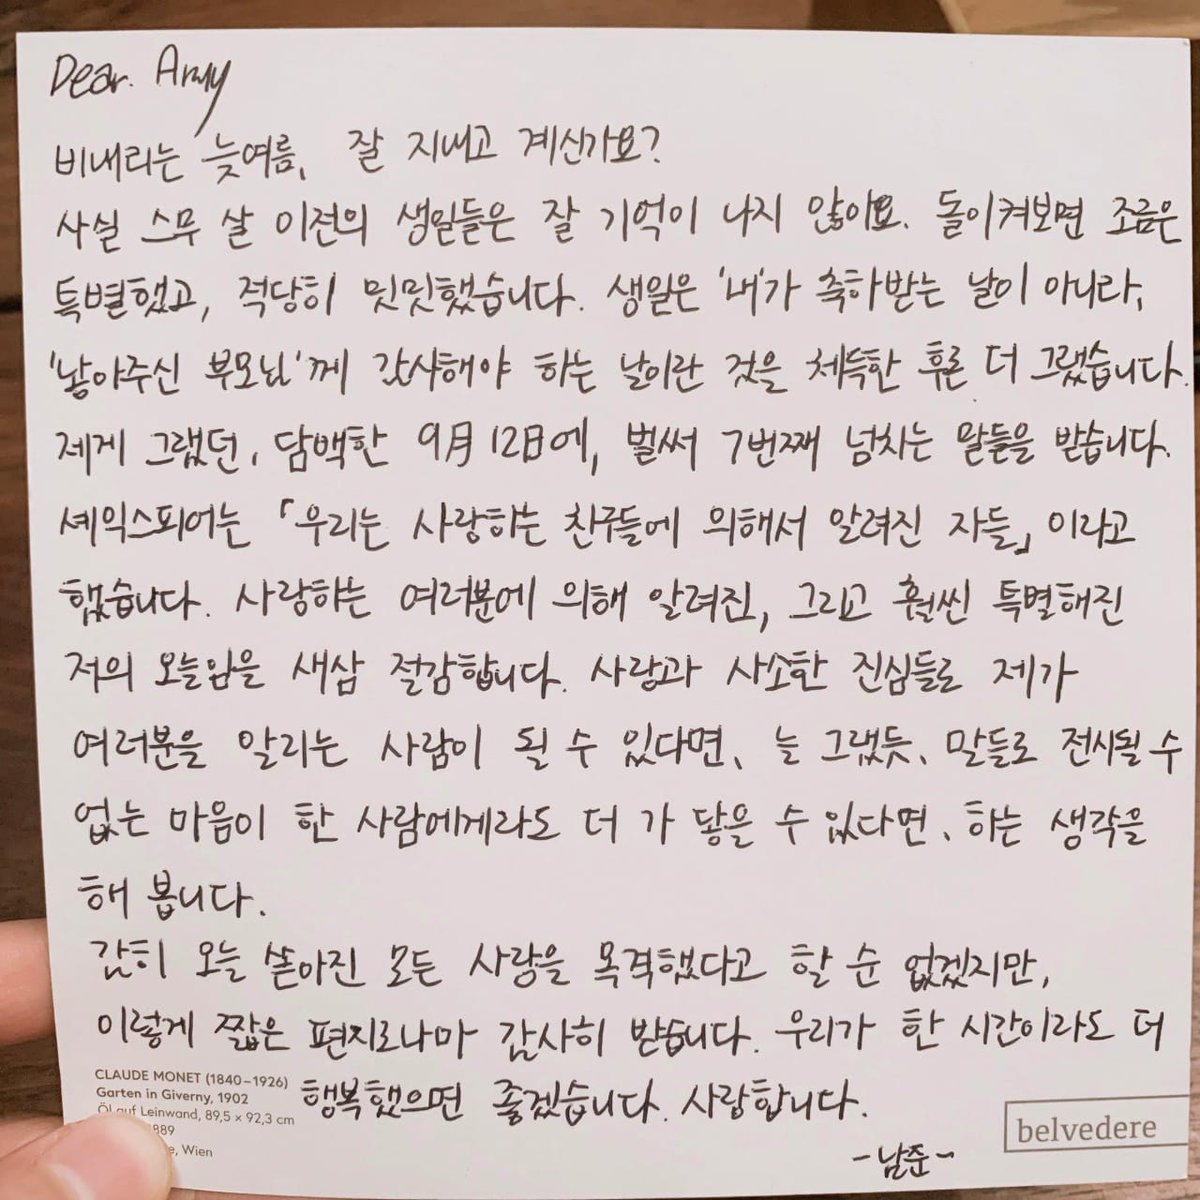 Dear. Army
비내리는 늦여름, 잘 지내고 계신가요?
사실 스무 살 이전의 생일들은 잘 기억이 나지 않아요. 돌이켜보면 조금은
특별했고, 적당히 밋밋했습니다. 생일은 '내'가 축하받는 날이 아니라,
'낳아주신 부모님'께 감사해야 하는 날이란 것을 체득한 후론 더 그랬습니다.
제게 그랬던, 담백한 9月 12日에, 벌써 7번째 넘치는 말들을 받습니다.
셰익스피어는 「우리는 사랑하는 친구들에 의해서 알려진 자들」 이라고
했습니다. 사랑하는 여러분에 의해 알려진, 그리고 훨씬 특별해진
저의 오늘임을 새삼 절감합니다. 사랑과 사소한 진심들로 제가
여러분을 알리는 사람이 될 수 있다면, 늘 그랬듯, 말들로 전시될 수
없는 마음이 한 사람에게라도 더 가 닿을 수 있다면, 하는 생각을
해 봅니다.
감히 오늘 쏟아진 모든 사랑을 목격했다고 할 순 없겠지만,
이렇게 짧은 편지로나마 감사히 받습니다. 우리가 한 시간이라도 더
행복했으면 좋겠습니다. 사랑합니다.
-남준-
CLAUDE MONET (1840–1926)
Garten in Giverny, 1902
Öl auf Leinwand, 89,5 × 92,3 cm
889
Wien
belvedere